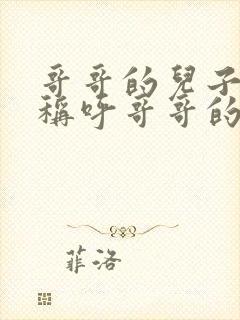 哥哥的兒子
稱呼哥哥的
菲洛